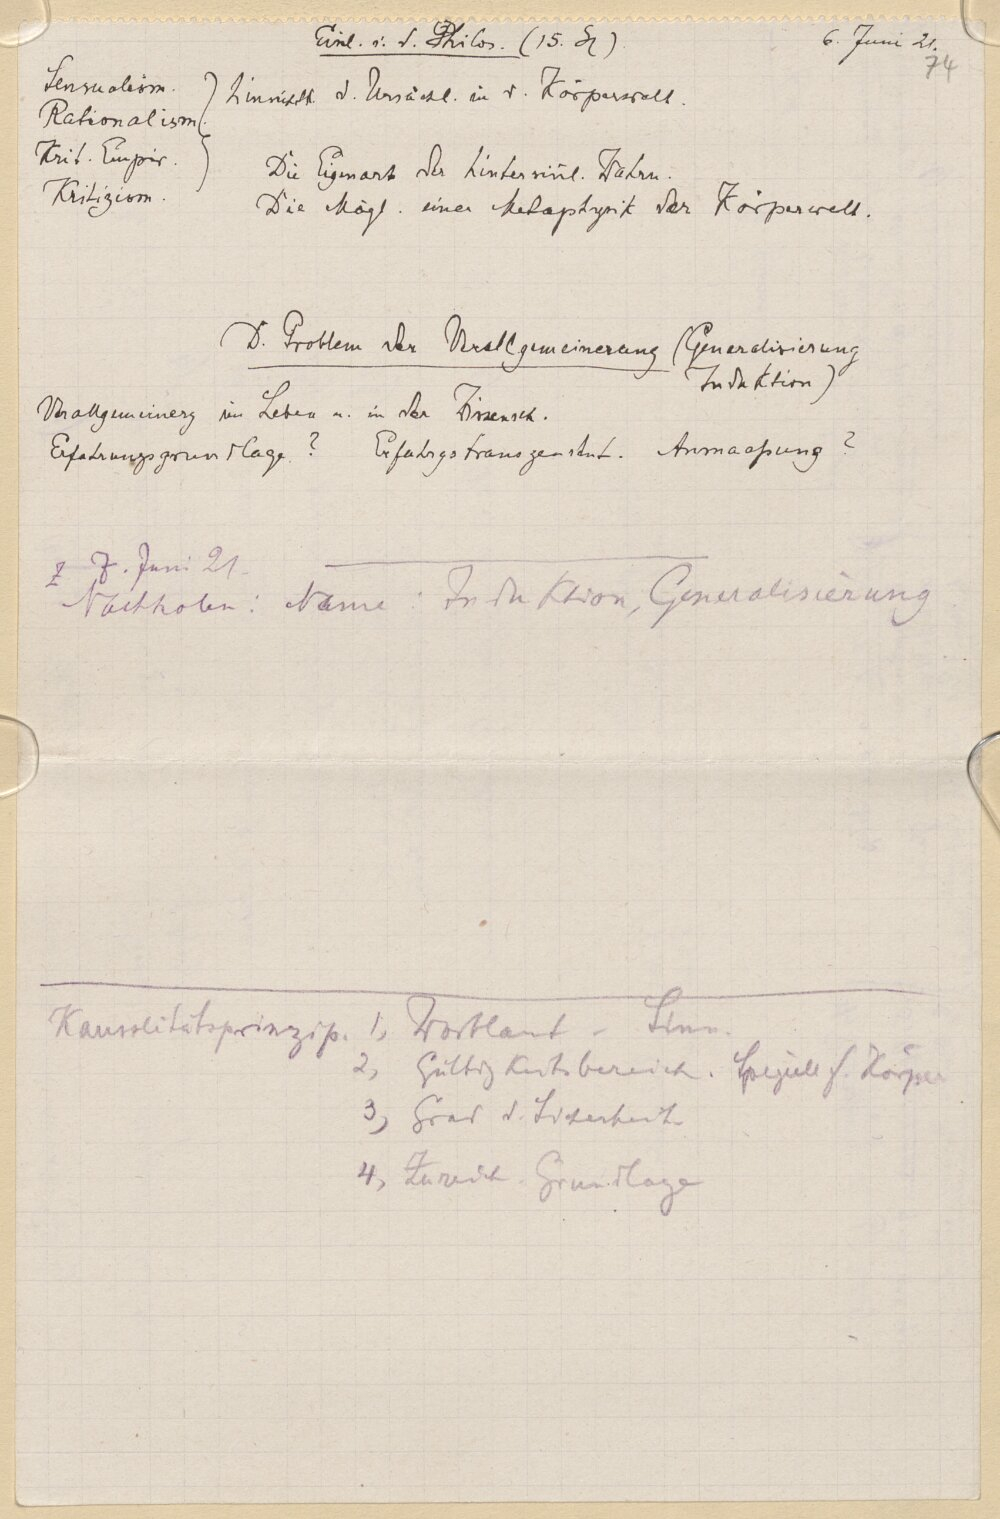 Einl. i. d. Philos. (15. St)
6. Juni 21.
74
Sensualism.
Rationalism.
Krit. Empir.
Kritizism.
hinsichtl. d. Ursächl. in d. Körperwelt.
Die Eigenart der hintersinnl. Wahrn.
Die Mögl. einer Metaphysik der Körperwelt.
D. Problem der Verallgemeinerung (Generalisierung
Induktion)
Verallgemeinerg im Leben u. in der Wissensch.
Erfahrungsgrundlage? Erfahrgstranszendent. Anmaßung?
7. Juni 21.
Nachholen: Name: Induktion, Generalisierung
Kausalitätsprinzip. 1, Wortlaut - Sinn.
2, Gültigkeitsbereich. Speziell f. Körper
3, Grad d. Sicherheit
4, Zureich. Grundlage